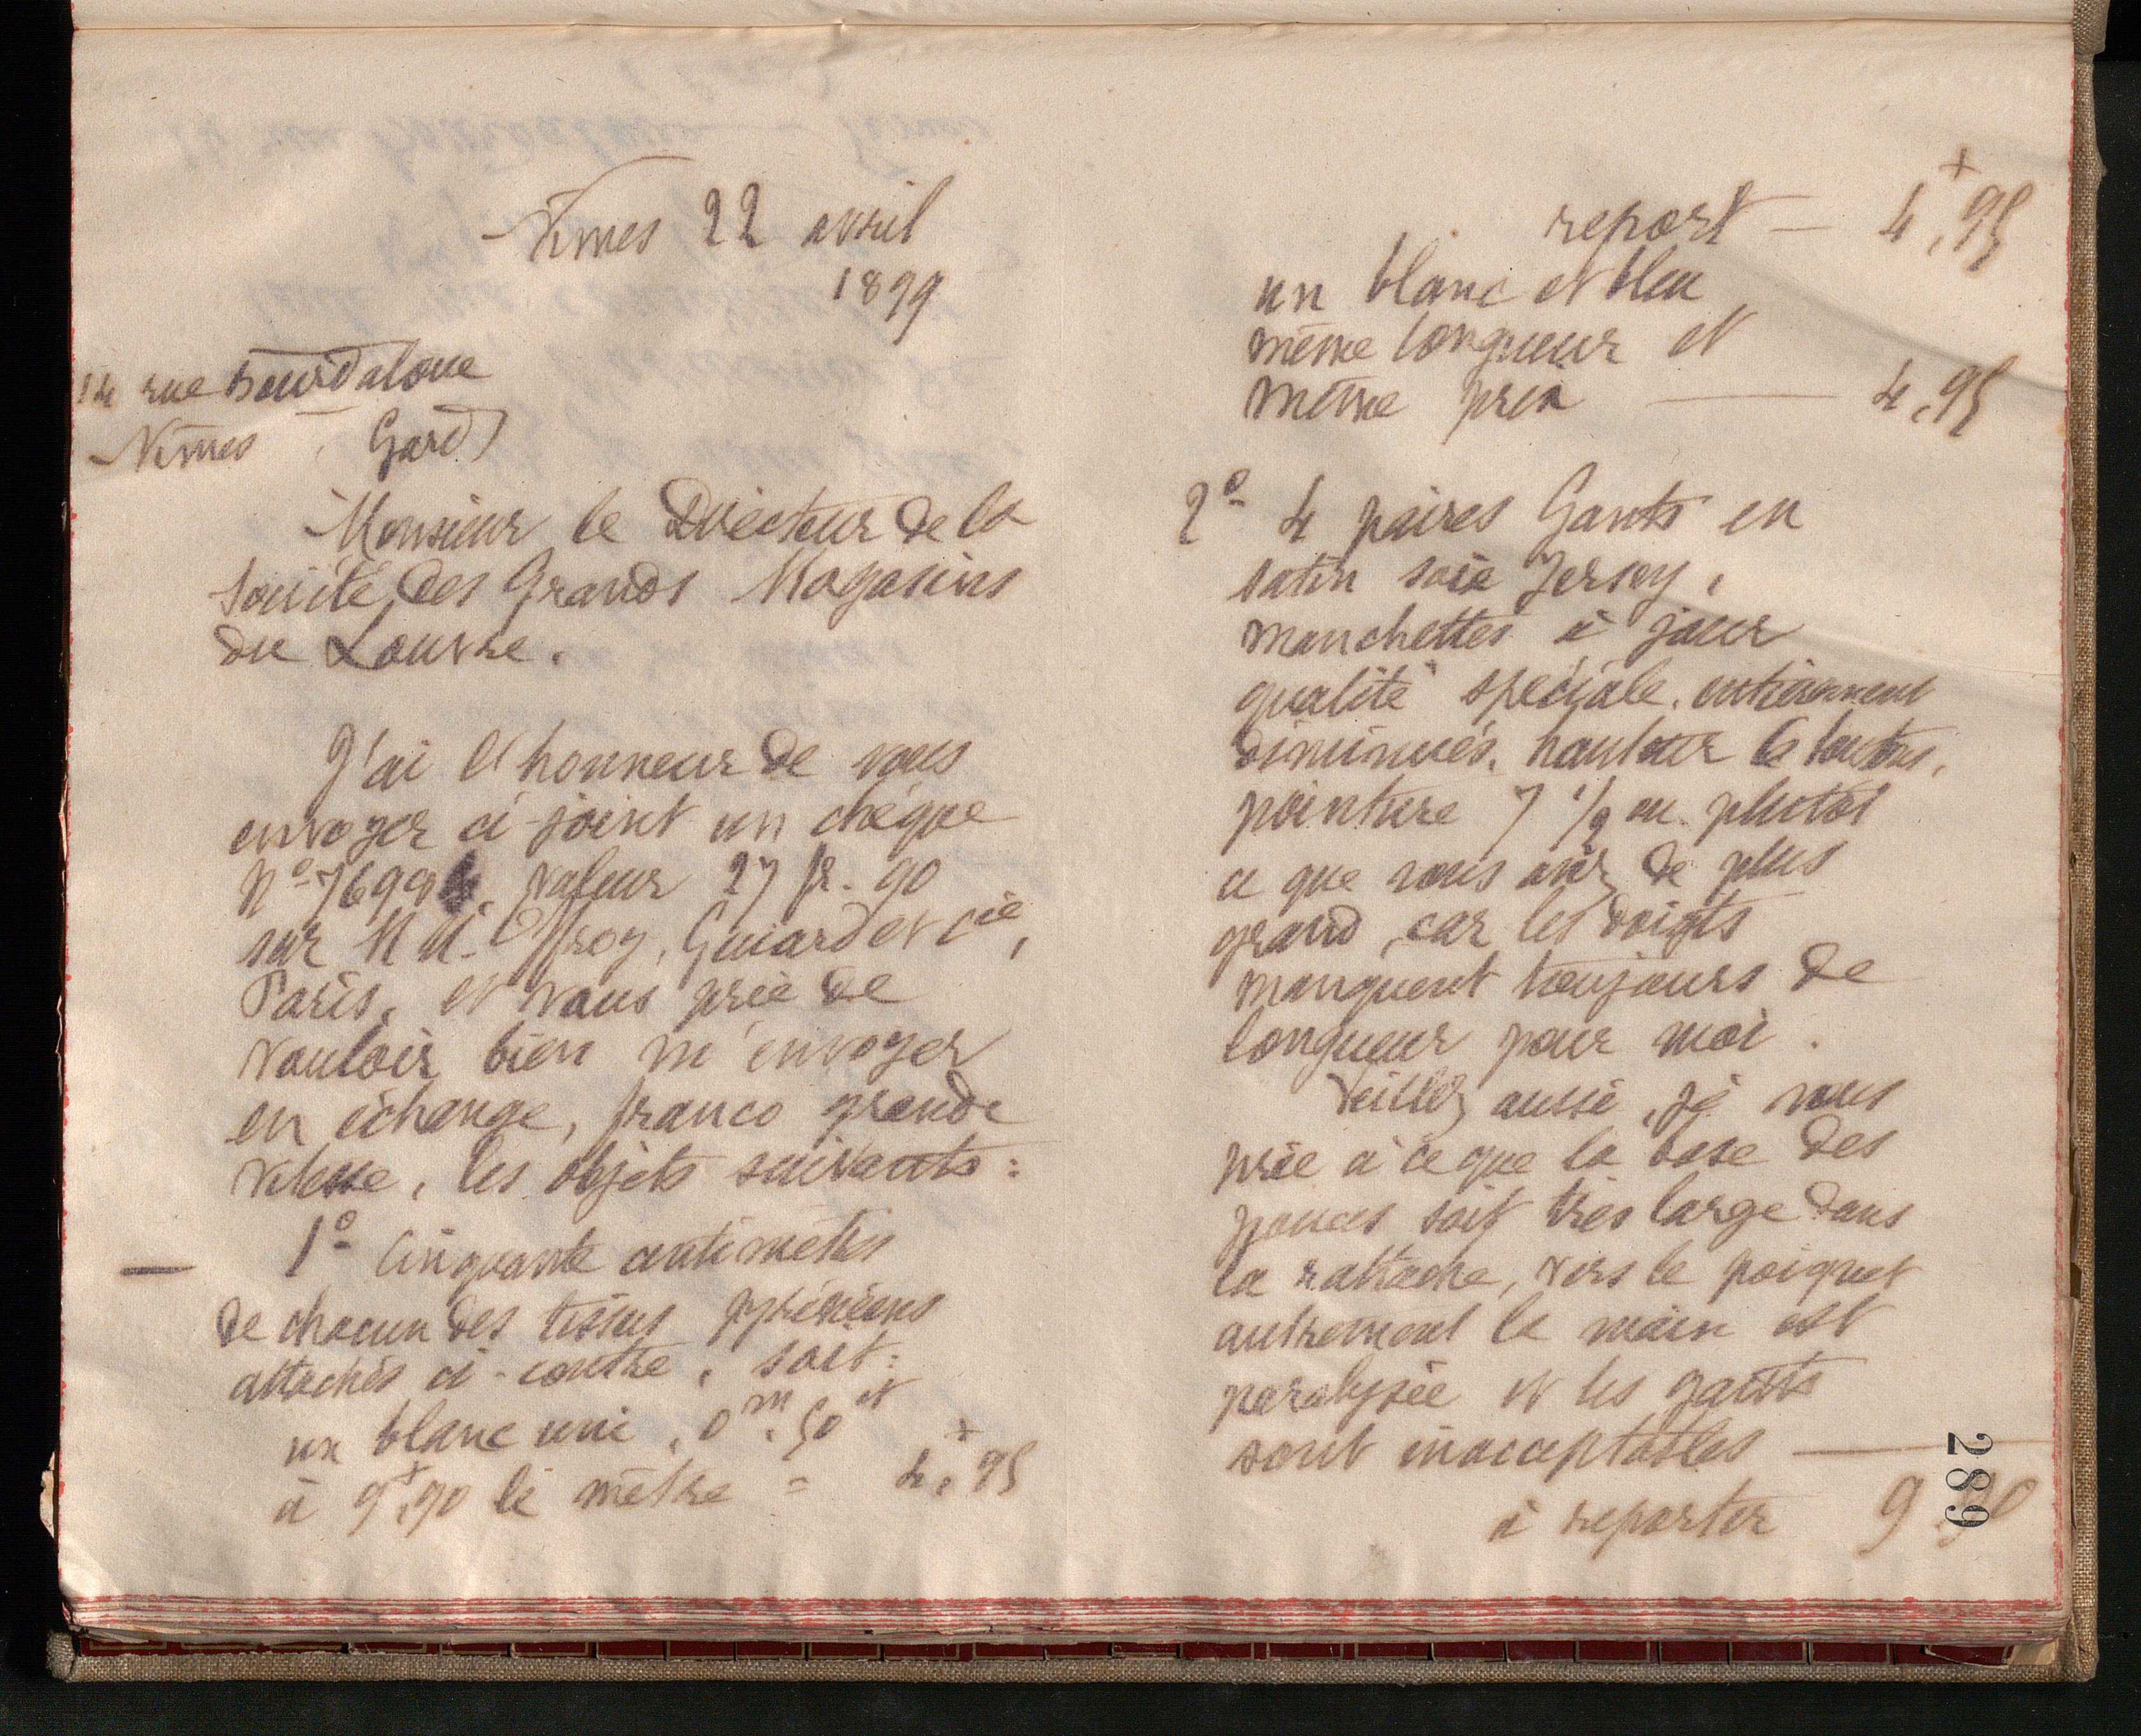 Nîmes 22 avril
1899
14 rue Bourdaloue
Nîmes (Gard)
Monsieur le Directeur de la
Société des Grands Magasins
du Louvre.
J'ai l'honneur de vous
envoyer ci-joint un chèque
No 7699 valeur 27 fr. 90
sur M M. Offroy, Guiard et Cie,
Paris, et vous prie de
vouloir bien m'envoyer
en échange, franco grande
vitesse, les objets suivants :
1o Cinquante centimètres
de chacun des tissus pyrénéens
attachés ci-contre, soit :
un blanc uni, 0m.50 et
à 9f,90 le mètre = 4f,95
report — 4f,95
un blanc et bleu
même longueur et
même prix — 4,95
2o 4 paires Gants en
satin soie Jersey,
manchettes à jour
qualité spéciale, entièrement
diminués, hauteur 6 boutons,
pointure 7 1/2 ou plutôt
ce que vous avez de plus
grand, car les doigts
manquent toujours de
longueur pour moi.
Veillez aussi, je vous
prie à ce que la base des
pouces soit très large dans
la rattache, vers le poignet
autrement la main est
paralysée et les gants
sont inacceptables —
à reporter 9,90
289